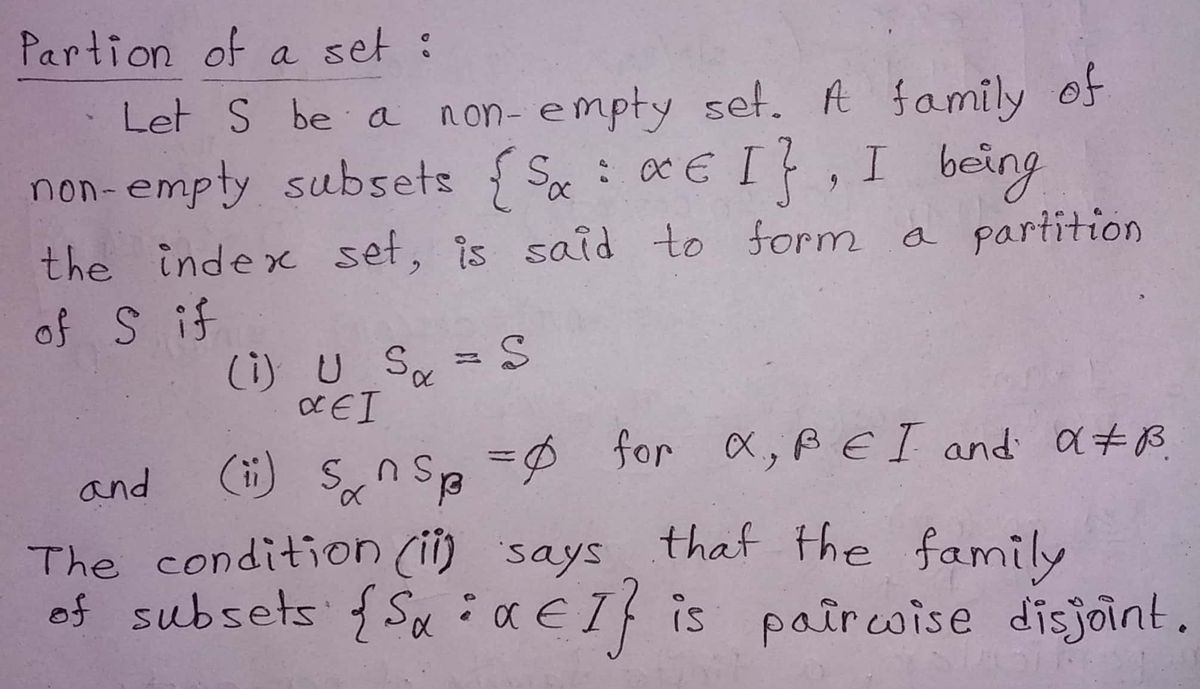 Partion of a set :
Let S be a non-empty set. A family of
non-empty subsets {Sα : α ∈ I}, I being
the index set, is said to form a partition
of S if
(i) ∪ Sα = S
α∈I
and (ii) Sα ∩ Sβ = ∅ for α, β ∈ I and α ≠ β.
The condition (ii) says that the family
of subsets {Sα : α ∈ I} is pairwise disjoint.